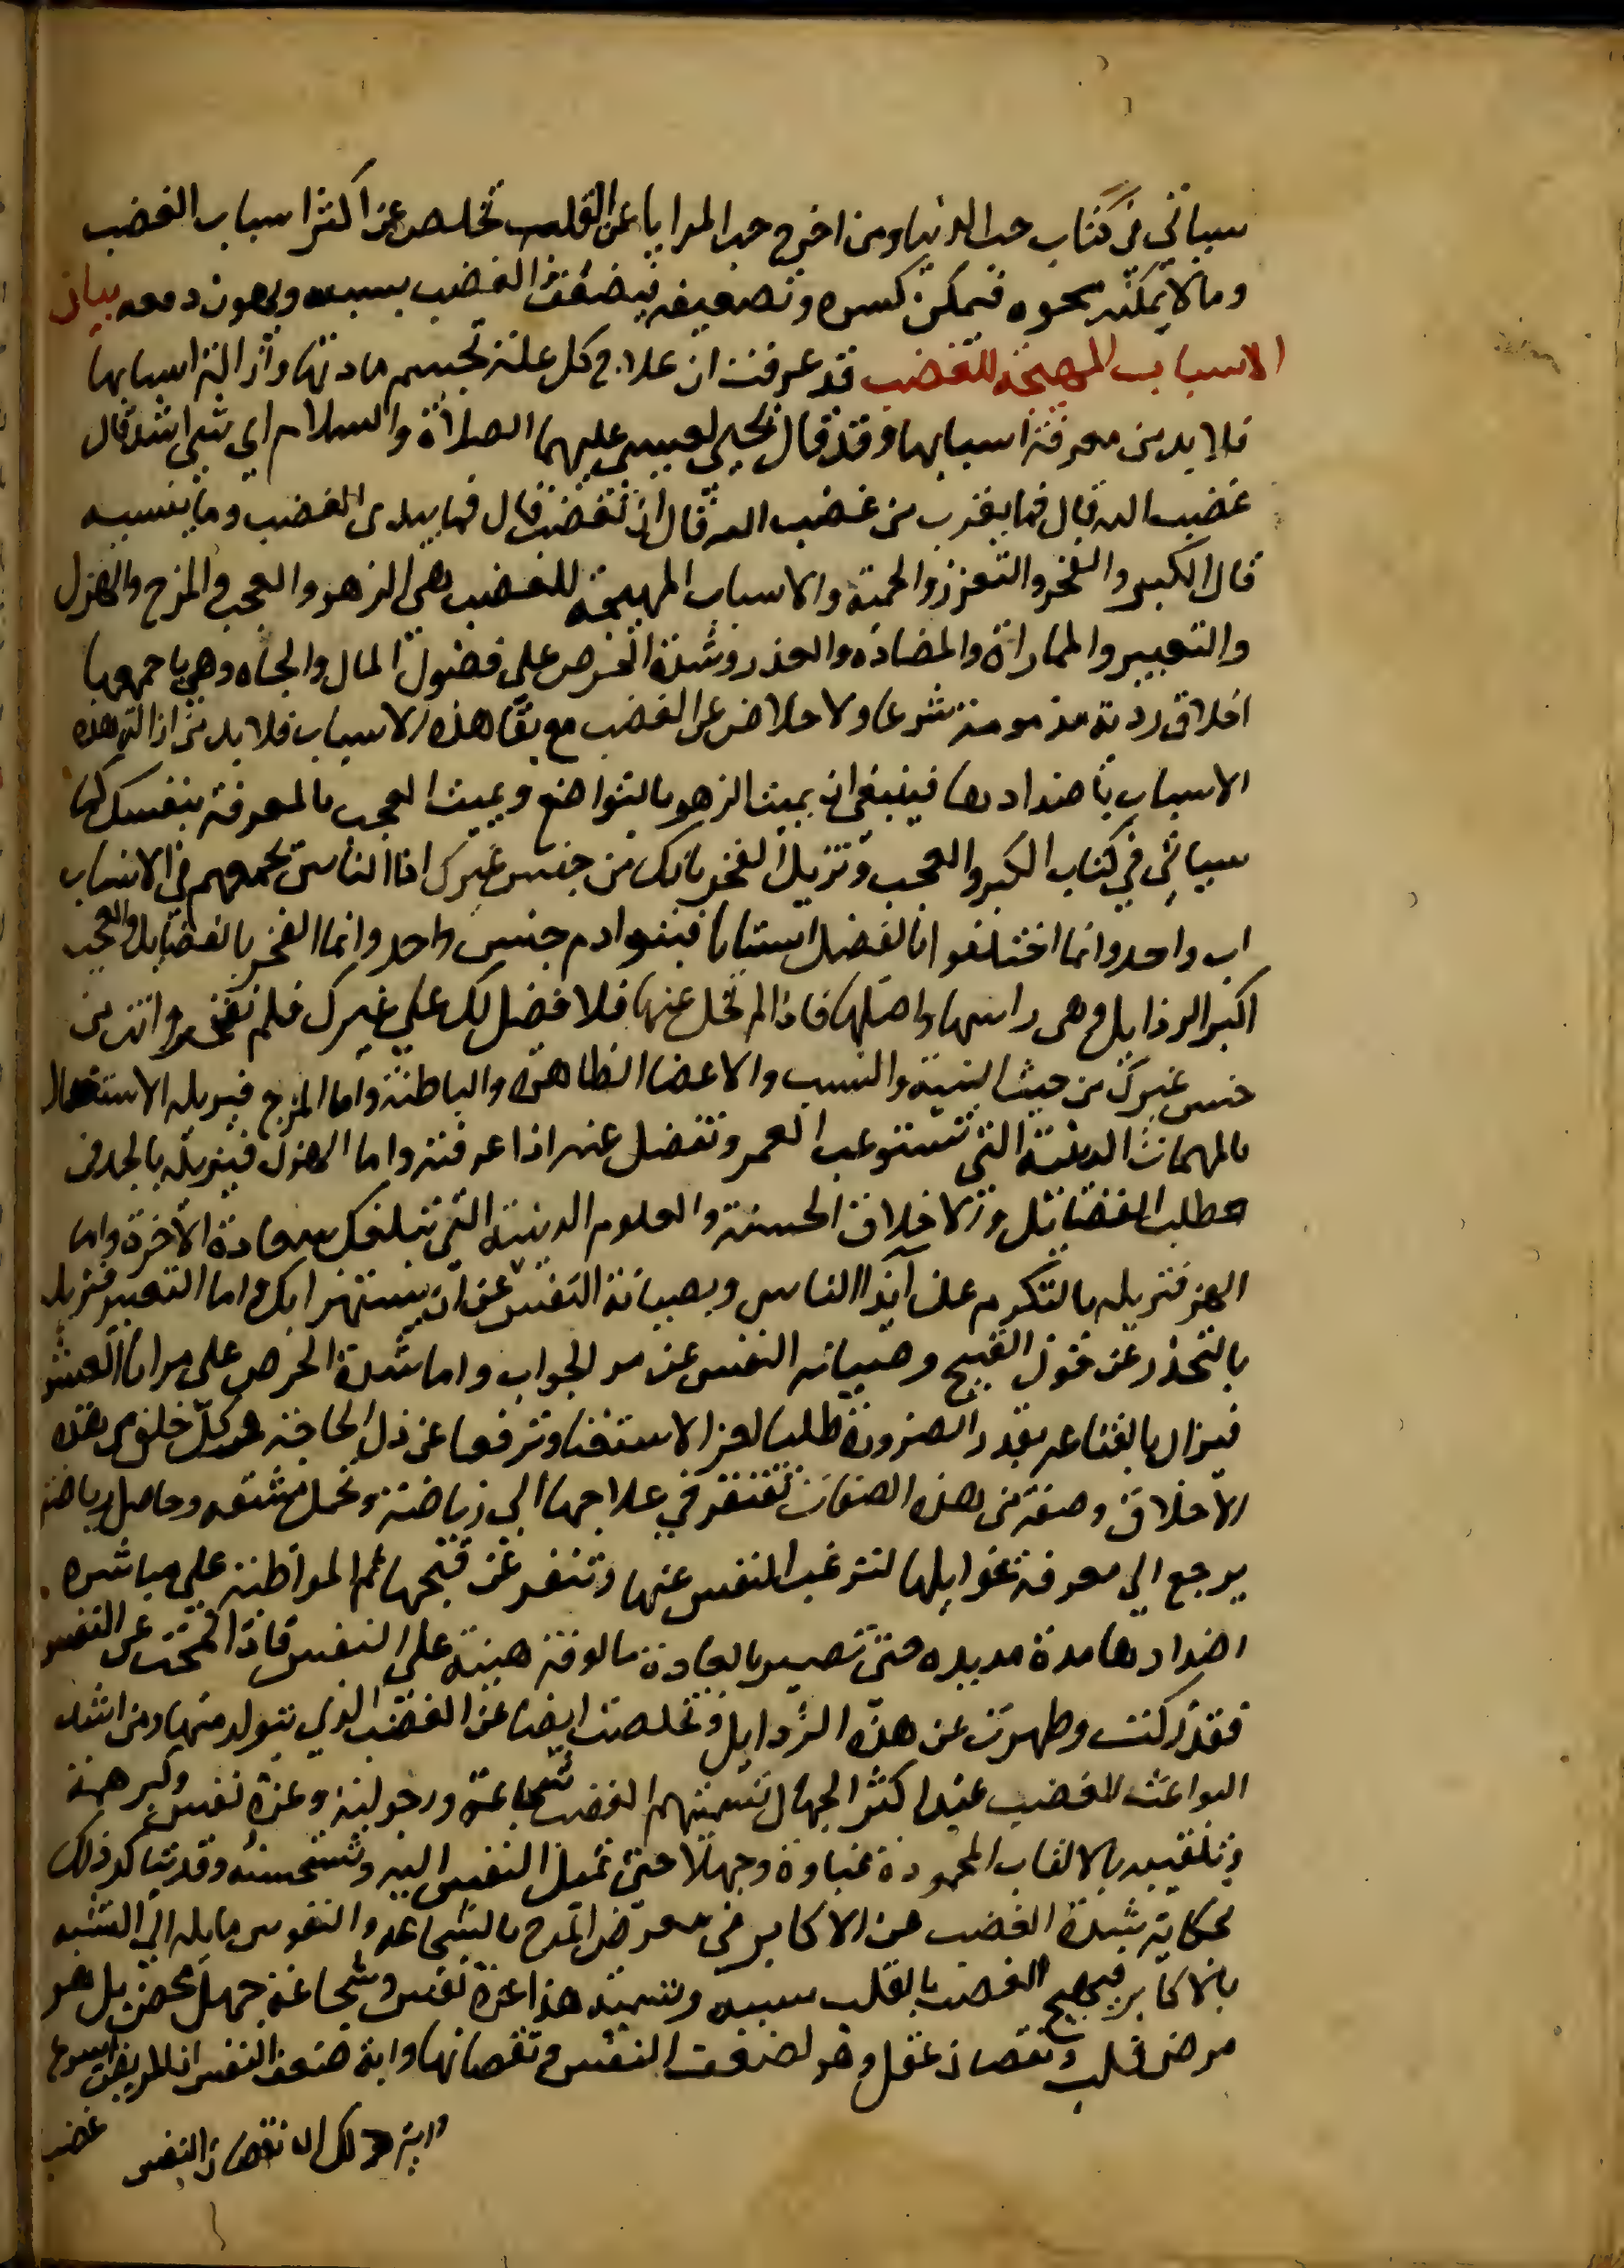 سياتي في كتاب حب الدنيا ومن اخرج حب المزايا عن القلب تخلص عن اكثر اسباب الغضب
وما لا يمكنه محوه فيمكن كسره وتضعيفه فيضعف الغضب بسببه ويهون دفعه بيان
الاسباب المهيجة للغضب قد عرفت ان علاج كل علة بحسم مادتها وازالة اسبابها
فلا بد من معرفة اسبابها وقد قال يحيي لعيسي عليهما الصلاة والسلام اي شي اشد قال
غضب الله قال فما يقرب من غضب الله قال ان تغضب قال فما يبدى الغضب وما ينبسه
قال الكبر والفخر والتعزز والحمية والاسباب المهيجة للغضب هي الزهو والعجب والمزح والهزل
والتعيير والمماراة والمضاده والغدر وشدة الحرص على فضول المال والجاه وهي باجمعها
اخلاق ردية مذمومة شرعا ولا خلاص عن الغضب مع بقا هذه الاسباب فلا بد من ازالة هذه
الاسباب باضدادها فينبغي ان يميت الزهو بالتواضع ويميت العجب بالمعرفة بنفسك كما
سياتي في كتاب الكبر والعجب وتزيل الفخر بانك من جنس غيرك اذا الناس يجمعهم في الانساب
اب واحد وانما اختلفوا في الفضل استاتا فبنوا ادم جنس واحد وانما الفخر بالفضايل والعجب
اكبر الرذايل وهي راسها واصلها فاذا لم تخل عنها فلا فضل لك علي غيرك فلم تفخر وانت من
جنس غيرك من حيث البنية والنسب والاعضا الظاهرة والباطنة واما المزح فيزيله الاستغال
بالمهمات الدينية التي تستوعب العمر وتفضل عنه اذا عرفته واما الهزل فيزيله بالجد في
طلب الفضائل والاخلاق الحسنة والعلوم الدينية التي تبلغك سعادة الآخرة واما
الهز فتزيله بالتكرم علي آيذا الناس وبصيانة النفس عن ان يستهزا بك واما التعيير فتزيله
بالتحذر عن قول القبيح وصيانه النفس عن مر الجواب واما شدة الحرص على مرايا العيش
فيزال بالقناعه بقدر الضرورة طلبا لعز الاستغنا وترفعا عن ذل الحاجة وكل خلق من هذه
الاخلاق وصفة من هذه الصفات تفتقر في علاجها الي رياضة وتحمل مشقه وحاصل رياضة
يرجع الي معرفة غوايلها لترغب النفس عنها وتنفر عن قبحها ثم المواظبة علي مباشره
اضدادها مدة مديده حتي تصير بالعادة مالوفة هينة علي النفس فاذا انمحت عن النفس
فقد زكت وطهرت عن هذه الرذايل وتخلصت ايضا عن الغضب الذي يتولد منها ومن اشد
البواعث للغضب عند اكثر الجهال تسميتهم الغضب شجاعة ورجولية وعزة نفس وكبر همة
وتلقيبه بالالقاب المحمودة غباوة وجهلا حتي تميل النفس اليه وتستحسنه وقد يتاكد ذلك
بحكاية شدة الغضب عن الاكابر في معرض المدح بالشجاعه والنفوس مايله الي التشبه
بالاكابر فيهيج الغضب بالقلب بسببه وتسمية هذا عزة نفس وشجاعة جهل محض بل هو
مرض قلب ونقصان عقل وهو لضعف النفس ونقصانها واية ضعف النفس ان المريض اسرع
واية ذلك ان نقصان النفس
غضب